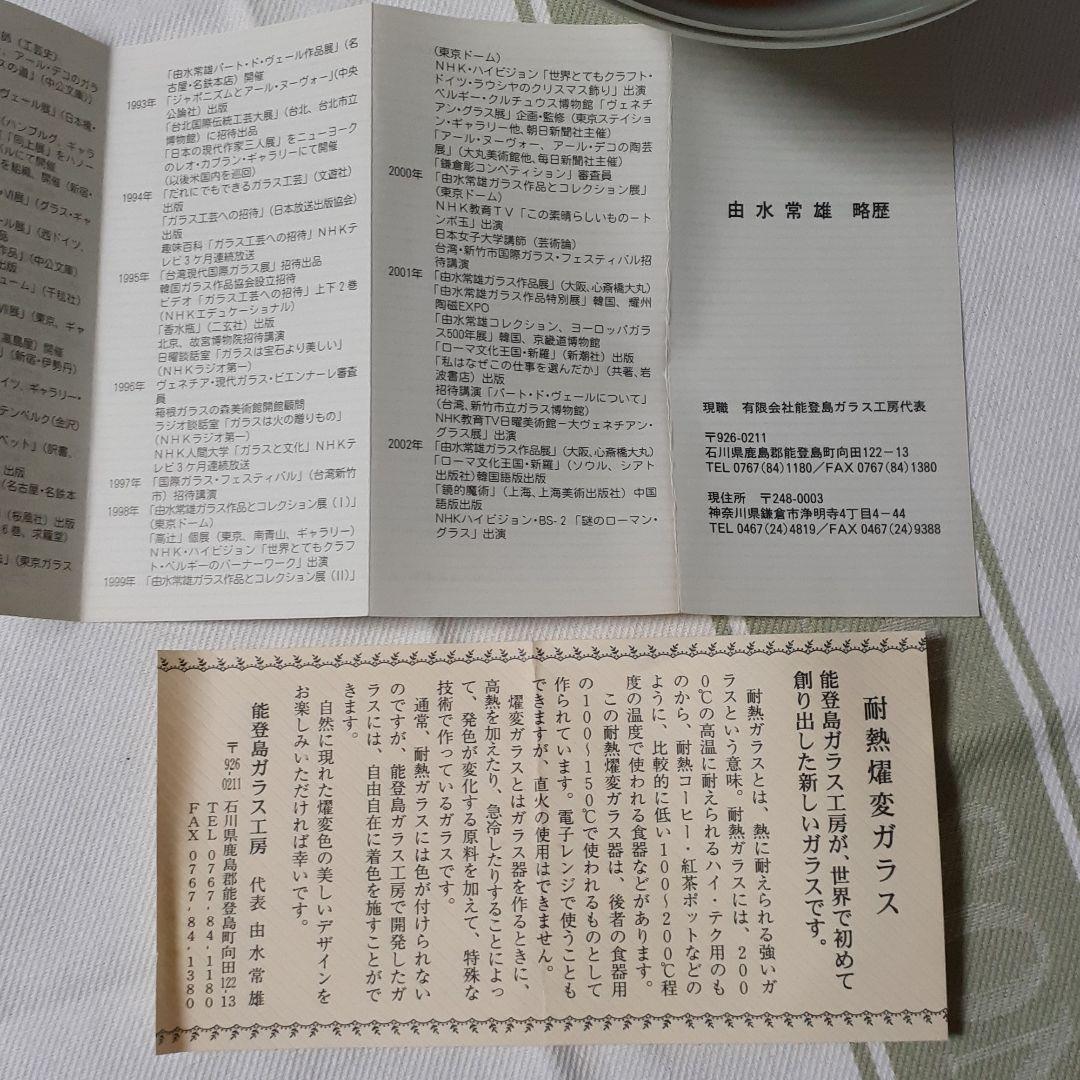 師(工芸史)
、アール・デコのガラ
スの道」(中公文庫))
ヴェール展」(日本橋・
(ハンブルグ、ギャラ
「同上展」をハノー
バルにて開催
を組織、開催(新宿・
・Ⅵ展」(グラス・ギャ
ール展」(西ドイツ、
作品」(中公文庫)
出版
ューム」(千毯社)
Ⅶ展」(東京、ギャ
高島屋)開催
」(新宿・伊勢丹)
イツ、ギャラリー・
テンベルク(金沢)
ベット」(訳書、
出版
(名古屋・名鉄本
(桜風社)出版
6巻、求龍堂)
」(東京ガラス
「由水常雄パート・ド・ヴェール作品展」(名
古屋・名鉄本店)開催
1993年 「ジャポニズムとアール・ヌーヴォー」(中央
公論社)出版
「台北国際伝統工芸大展」(台北、台北市立
博物館)に招待出品
「日本の現代作家三人展」をニューヨーク
のレオ・カプラン・ギャラリーにて開催
(以後米国内を巡回)
1994年 「だれにでもできるガラス工芸」(文遊社)
出版
「ガラス工芸への招待」(日本放送出版協会)
出版
趣味百科「ガラス工芸への招待」NHKテ
レビ3ケ月連続放送
1995年 「台湾現代国際ガラス展」招待出品
韓国ガラス作品協会設立招待
ビデオ「ガラス工芸への招待」上下2巻
(NHKエデュケーショナル)
「香水瓶」(二玄社)出版
北京、故宮博物院招待講演
日曜談話室「ガラスは宝石より美しい」
(NHKラジオ第一)
1996年 ヴェネチア・現代ガラス・ビエンナーレ審査
員
箱根ガラスの森美術館開館顧問
ラジオ談話室「ガラスは火の贈りもの」
(NHKラジオ第一)
NHK人間大学「ガラスと文化」NHKテ
レビ3ケ月連続放送
1997年 「国際ガラス・フェスティバル」(台湾新竹
市)招待講演
1998年 「由水常雄ガラス作品とコレクション展(Ⅰ)」
(東京ドーム)
「高辻」個展(東京、南青山、ギャラリー)
NHK・ハイビジョン「世界とてもクラフ
ト・ベルギーのバーナーワーク」出演
1999年 「由水常雄ガラス作品とコレクション展(Ⅱ)」
(東京ドーム)
NHK・ハイビジョン「世界とてもクラフト・
ドイツ・ラウシャのクリスマス飾り」出演
ベルギー・クルチュウス博物館「ヴェネチ
アン・グラス展」企画・監修(東京ステイショ
ン・ギャラリー他、朝日新聞社主催)
「アール・ヌーヴォー、アール・デコの陶芸
展」(大丸美術館他、毎日新聞社主催)
「鎌倉彫コンペティション」審査員
2000年 「由水常雄ガラス作品とコレクション展」
(東京ドーム)
NHK教育TV「この素晴らしいもの―ト
ンボ玉」出演
日本女子大学講師(芸術論)
台湾・新竹市国際ガラス・フェスティバル招
待講演
2001年 「由水常雄ガラス作品展」(大阪、心斎橋大丸)
「由水常雄ガラス作品特別展」韓国、耀州
陶磁EXPO
「由水常雄コレクション、ヨーロッパガラ
ス500年展」韓国、京畿道博物館
「ローマ文化王国・新羅」(新潮社)出版
「私はなぜこの仕事を選んだか」(共著、岩
波書店)出版
招待講演「パート・ド・ヴェールについて」
(台湾、新竹市立ガラス博物館)
NHK教育TV日曜美術館―大ヴェネチアン・
グラス展」出演
2002年 「由水常雄ガラス作品展」(大阪、心斎橋大丸)
「ローマ文化王国・新羅」(ソウル、シアト
出版社)韓国語版出版
「鏡的魔術」(上海、上海美術出版社)中国
語版出版
NHKハイビジョン・BS-2「謎のローマン・
グラス」出演
由水常雄 略歴
現職 有限会社能登島ガラス工房代表
〒926-0211
石川県鹿島郡能登島町向田122−13
TEL 0767(84)1180/FAX 0767(84)1380
現住所 〒248-0003
神奈川県鎌倉市浄明寺4丁目4−44
TEL 0467(24)4819/FAX 0467(24)9388
耐熱燿変ガラス
能登島ガラス工房が、世界で初めて
創り出した新しいガラスです。
耐熱ガラスとは、熱に耐えられる強いガ
ラスという意味。耐熱ガラスには、200
0℃の高温に耐えられるハイ・テク用のも
のから、耐熱コーヒー・紅茶ポットなどの
ように、比較的に低い100〜200℃程
度の温度で使われる食器などがあります。
この耐熱燿変ガラス器は、後者の食器用
の100〜150℃で使われるものとして
作られています。電子レンジで使うことも
できますが、直火の使用はできません。
燿変ガラスとはガラス器を作るときに、
高熱を加えたり、急冷したりすることによっ
て、発色が変化する原料を加えて、特殊な
技術で作っているガラスです。
通常、耐熱ガラスには色が付けられない
のですが、能登島ガラス工房で開発したガ
ラスには、自由自在に着色を施すことがで
きます。
自然に現れた燿変色の美しいデザインを
お楽しみいただければ幸いです。
能登島ガラス工房 代表 由水常雄
〒926-0211 石川県鹿島郡能登島町向田122-13
TEL 0767-84-1180
FAX 0767-84-1380